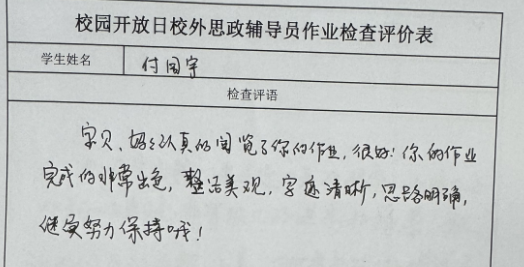 校园开放日校外思政辅导员作业检查评价表
学生姓名 付国宇
检查评语
宝贝、妈妈认真的阅览了你的作业,很好!你的作业
完成的非常出色,整洁美观,字迹清晰,思路明确,
继续努力保持哦!